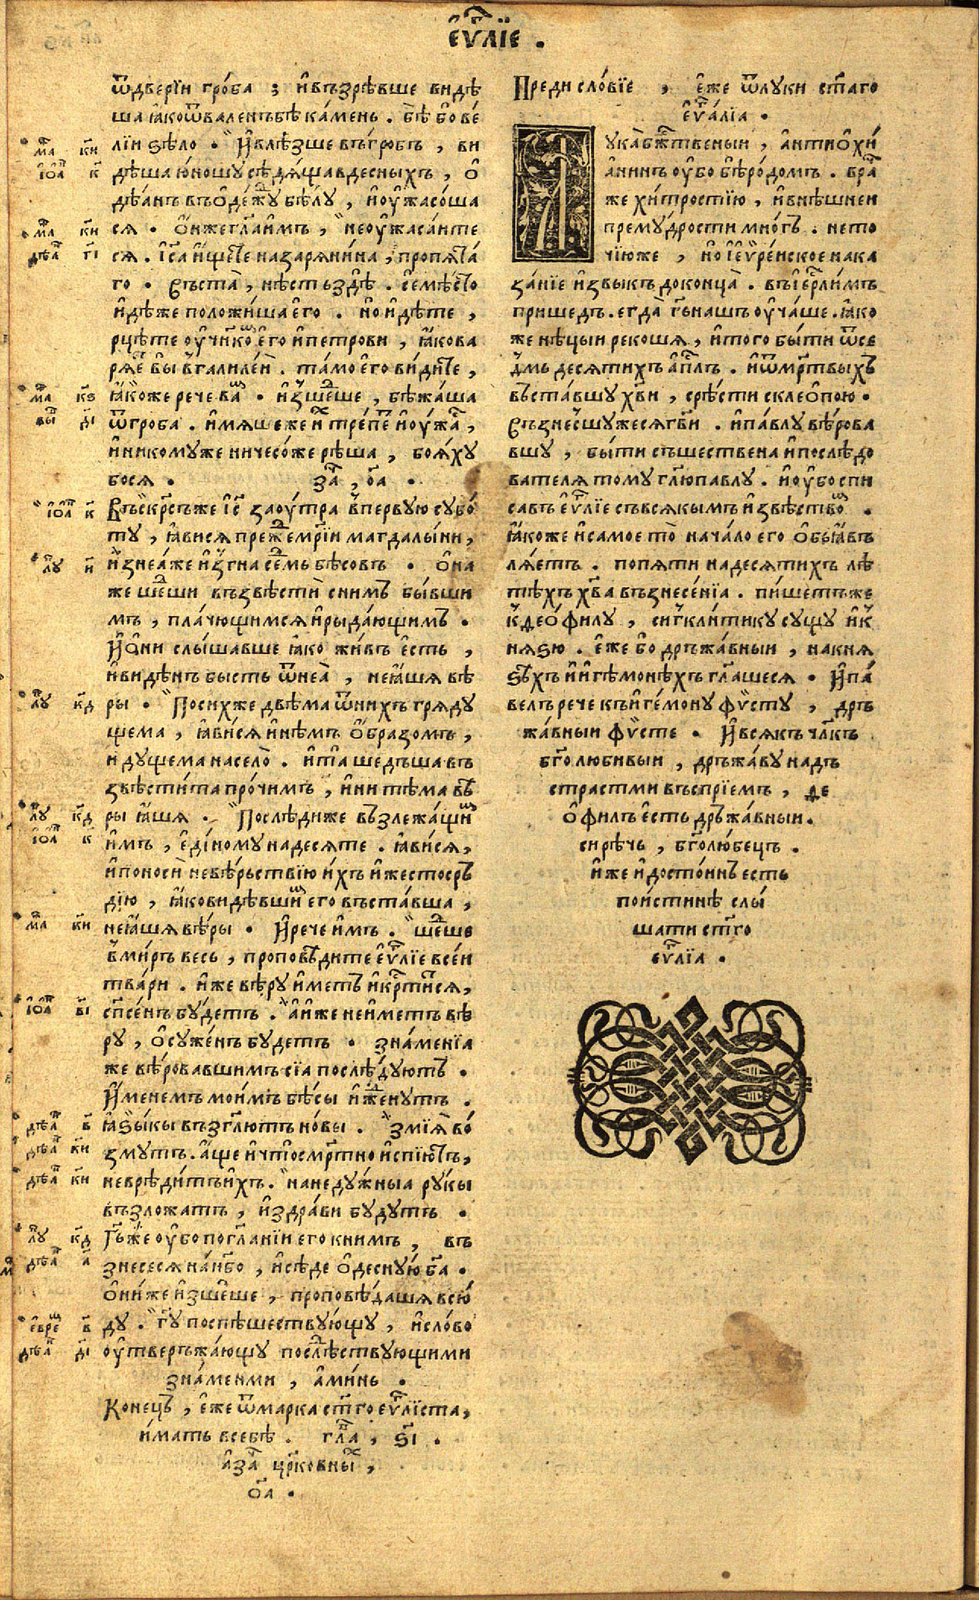 Еѵ҃лїе .
ѿдверїи гроба ; и҆възрѣвше видѣ
ша ꙗкоѿваленъбѣ камень . бѣ бо ве
лїи ѕѣло . И҆влѣзше въгробъ , ви
дѣша юношу сѣдѧща вдесныхъ , ѡ
дѣанъ въѻдежу бѣлу , и҆оужасоша
сѧ . О҆нжеглаимъ , неоужасаите
сѧ . І҆са ищете назарѧнина , пропѧта
го . Въста , нѣсть здѣ . се мѣсто
идѣже положиша его . но идѣте ,
рцѣте оучнко его и҆петрови , ꙗкова
рѧе вы вгалилеи . тамо его видите ,
ꙗкоже рече ва . и҆зшеше , бѣжаша
ѿгроба . имѧше же и҆ трепе и҆оужа ,
и҆никомуже ничесоже рѣша , боѧху
босѧ . за , оа .
Въскрсъже і҆с заоутра впервую субо
ту , ꙗвисѧ преже мрїи магдалыни ,
и҆знеꙗже и҆згна семь бѣсовъ . О҆на
же шеши възвѣсти снимъ бывши
мъ , плачющимсѧ и҆рыдающимъ .
И҆ѻни слышавше ꙗко живъ есть ,
и҆видѣнъ бысть ѿнеа , неꙗшѧ вѣ
ры . Посихже двѣма ѿнихъ грѧду
щема , ꙗвисѧ и҆нѣмъ ѻбразомъ ,
идущема насело . и҆та шедъша въ
звѣстита прочимъ , и҆ни тѣма вѣ
ры ꙗшѧ . Послѣдиже възлежащи
имъ , единому надесѧте . ꙗвисѧ ,
и҆поноси невѣрьствїю ихъ и҆жестосръ
дїю , ꙗковидѣвши его въставша ,
неꙗшѧ вѣры . И҆рече имъ . шеше
вмиръ весь , проповѣдите еѵ҃лїе всеи
твари . и҆же вѣру иметъ и҆крститсѧ ,
спсенъ будетъ . а҆иже неиметъ вѣ
ру , ѻсуженъ будетъ . знаменїа
же вѣровавшимъ сїа послѣдуютъ .
И҆менемъ моимъ бѣсы и҆женутъ .
ꙗзыкы възглютъ новы . змїѧ во
змутъ . аще и҆что смртно и҆спїютъ ,
невредитъ ихъ . нанедужныа рукы
възложатъ , и҆здрави будутъ .
Гъже оубо поглании его книмъ , въ
знесесѧ нанбо , и҆сѣде ѻдесную ба .
О҆ниже и҆зшеше , проповѣдашѧ всю
ду . гу поспѣшествующу , и҆слово
оутвержающу послѣствующими
знаменми , аминь .
Конецъ , еже ѿмарка стго еѵ҃лїста ,
имать всебѣ . гла , ѕі .
а҆за црковны ,
оа .
Предисловїе , еже ѿлуки стаго
еѵ҃алїа .
Лука бжтвеныи , антиѻхи
анинъ оубо бѣродомъ . вра
же хитростїю , и҆внѣшнеи
премудрости многъ . нето
чїюже , но і҆еѵренское нака
занїе и҆звыкъ доконца . въіерлимъ
пришедъ . егда гьнашъ оучаше . ꙗко
же нѣцыи рекошѧ , и҆того быти ѿсе
дмь десѧтихъ а҆плъ . и҆ѿмртвыхъ
въставшу хви , срѣсти склеѻпою .
Възнесшужесѧ гви . и҆павлу вѣрова
вшу , быти съшествена и҆послѣдо
вателѧ тому глю павлу . и҆оубо спи
савъ еѵ҃лїе съвсѧкымъ и҆звѣство .
ꙗкоже и҆самое то начало его ѻбыꙗвъ
лѧетъ . попѧти надесѧтихъ лѣ
тѣхъ хва възнесенїа . пишетъже
кѳеѻфилу , сигклитику сущу и҆к
нѧѕю . еже бо дръжавныи , накнѧ
ѕѣхъ и҆ игемонѣхъ глашесѧ . И҆па
велъ рече къ игемону фисту , дръ
жавныи фисте . И҆всѧкъ члкъ
бголюбивыи , дръжаву надъ
страстми въспрїемъ , ѳе
ѻфилъ есть дръжавныи .
сирѣчь , бголюбецъ .
иже и҆достоинъ есть
поистинѣ слы
шати стго
еѵ҃лїа .